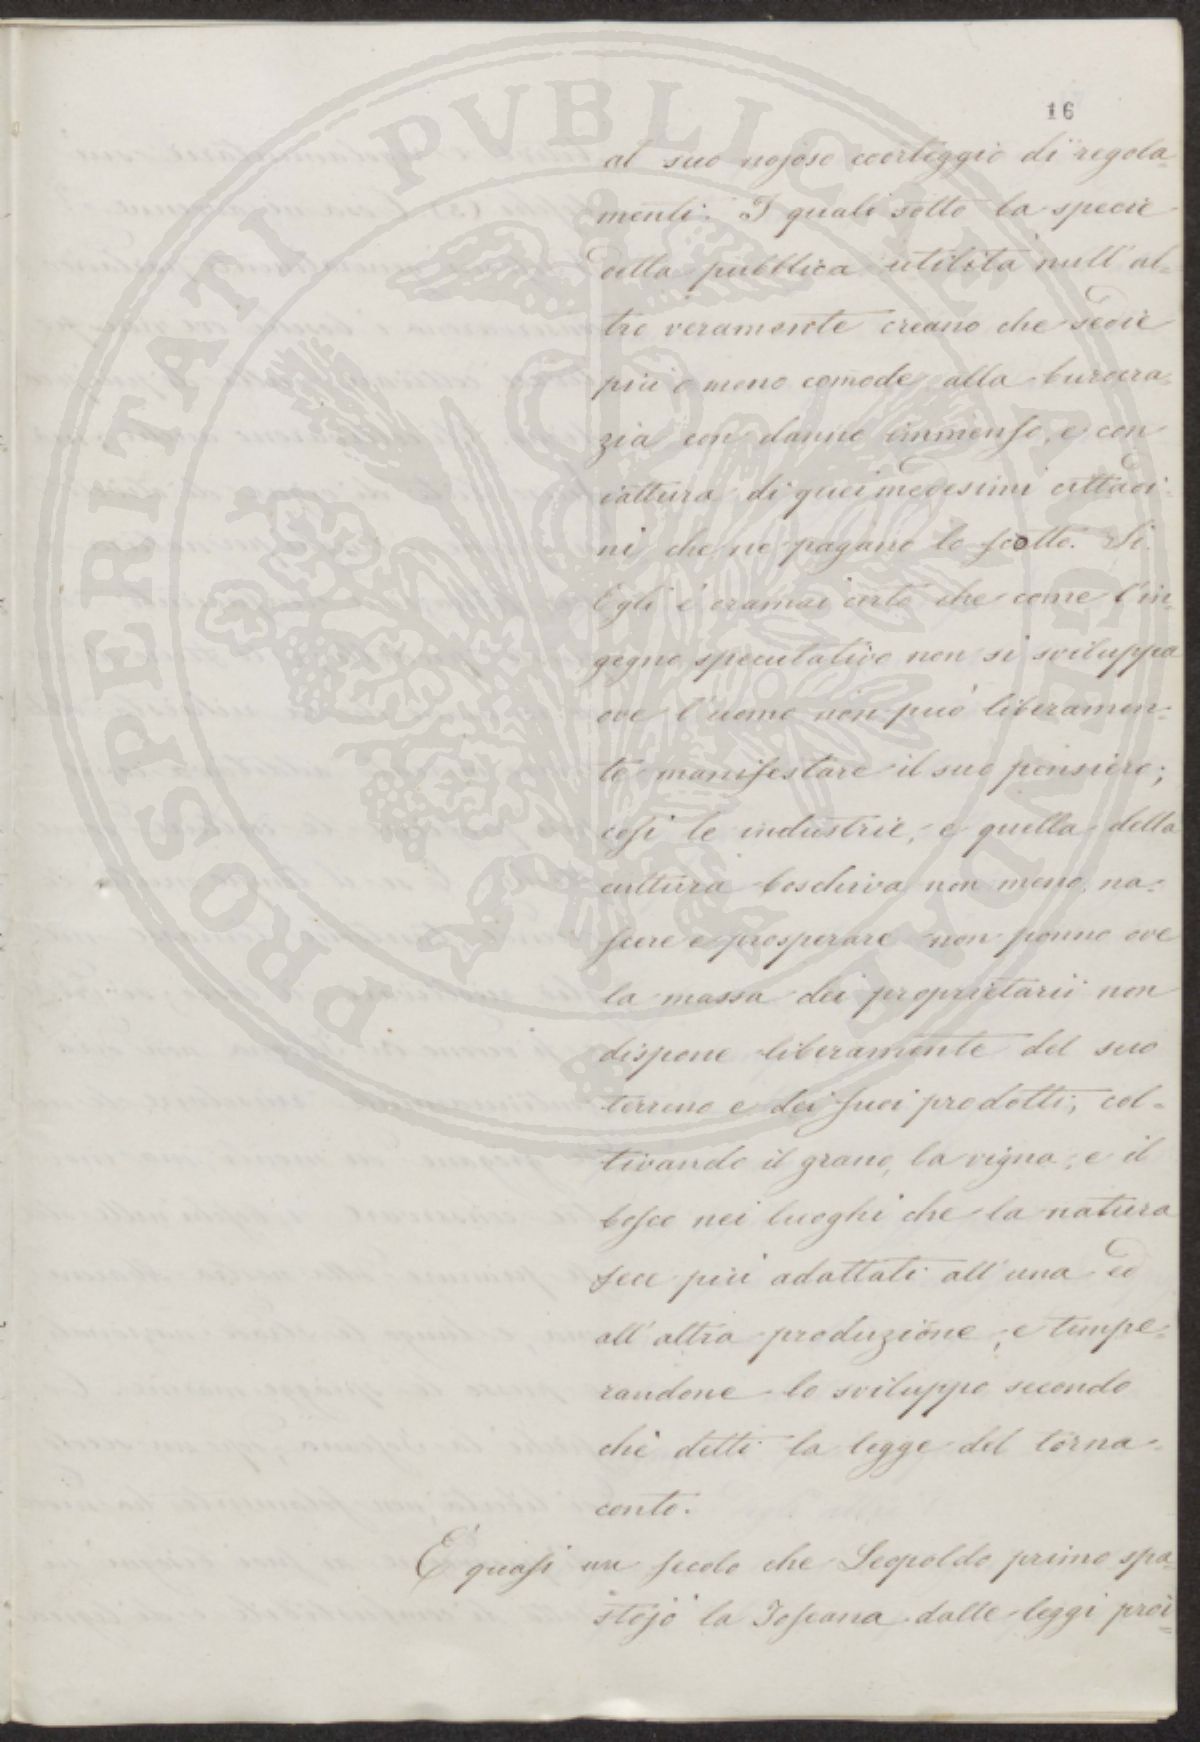 16
al suo nojoso corteggio di regola=
menti. I quali sotto la specie
della pubblica utilità null'al=
tro veramente creano che sedie
più o meno comode alla burocra=
zia con danno immenso, e con
iattura di quei medesimi cittadi=
ni che ne pagano lo scotto. Si
Egli è oramai certo che come l'in=
gegno speculativo non si sviluppa
ove l'uomo non può liberamen=
te manifestare il suo pensiero;
così le industrie, e quella della
cultura boschiva non meno, na=
scere e prosperare non ponno ove
la massa dei proprietarii non
dispone liberamente del suo
terreno e dei suoi prodotti, col=
tivando il grano, la vigna, e il
bosco nei luoghi che la natura
fece più adattati all'una ed
all'altra produzione, e tempe=
randone lo sviluppo secondo
che detti la legge del torna=
conto.
È quasi un secolo che Leopoldo primo spa=
stojò la Toscana dalle leggi proi=
PROSPERITATI PVBLICAE AVGENDAE